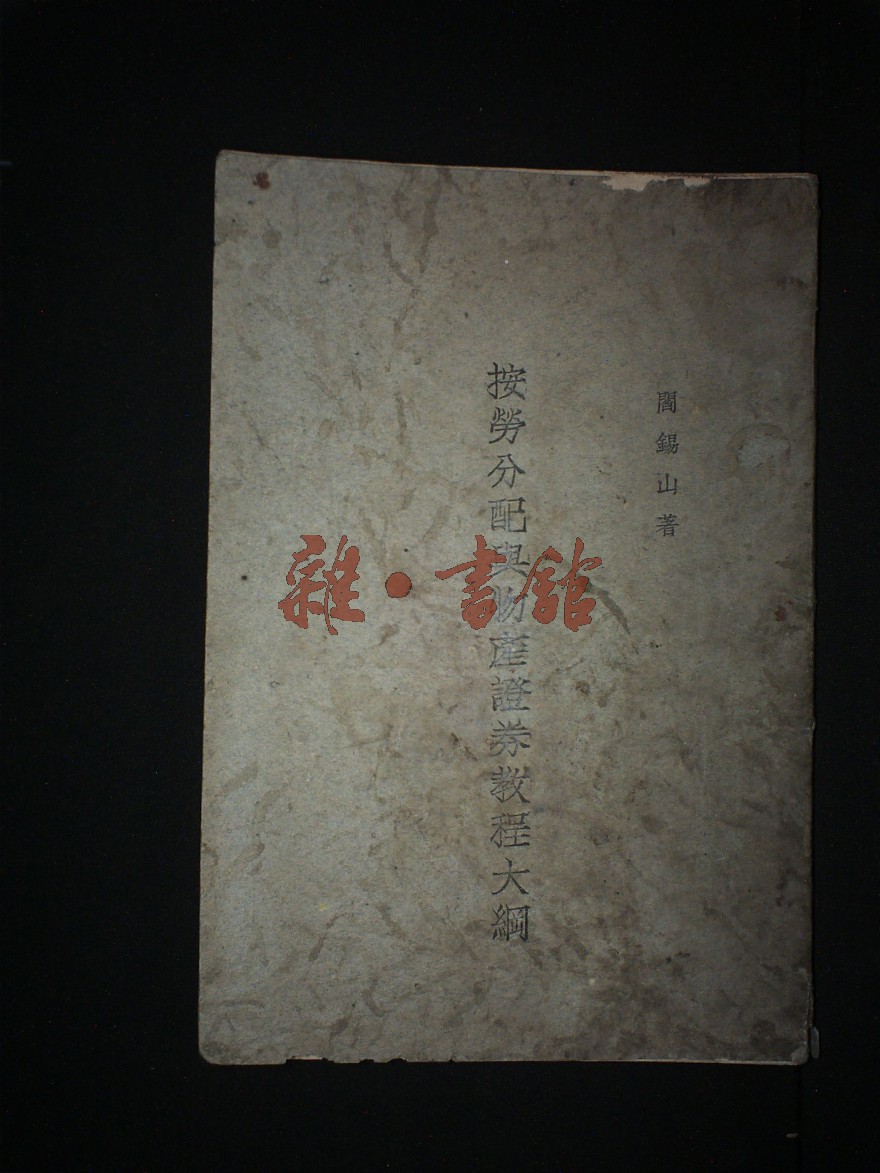 閻錫山著
按勞分配與物產證券教程大綱
雜·書館